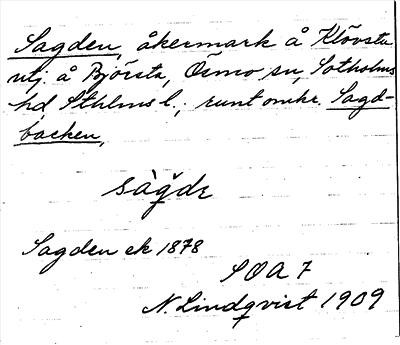 Sagden, åkermark å Klövsta
utj. å Björsta, Ösmo sn, Sotholms
hd, Sthlms l.; runt omkr. Sagd-
backen,
sàg̀dɛ
Sagden ek 1878
SOA 7
N. Lindqvist 1909